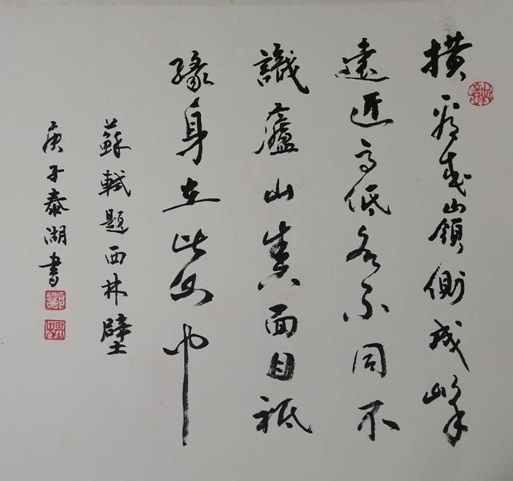 橫看成嶺側成峰
遠近高低各不同不
識廬山真面目祗
緣身在此山中
蘇軾題西林壁
庚子泰湖書